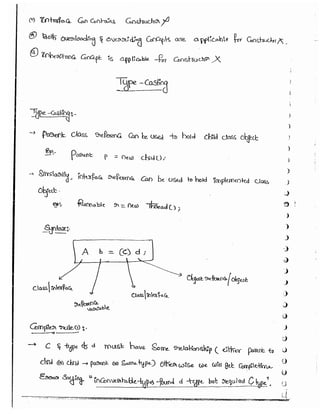 (7) Interface Can Contains Constructor X
(8) Both overloading & overriding Concepts are applicable for Constructor X.
(9) Inheritance Concept is applicable for Constructor X
Type-Casting
Type-Casting:-
→ Parent class reference can be used to hold child class object
Eg: Parent p = new child();
→ Similarly, interface reference can be used to hold implemented class
object.
Eg: Runnable r = new Thread();
Syntax:
A b = (C) d;
class/interface
reference
variable
class/interface
object reference/object
Compiler rule(1):-
→ C & type of d must have some relationship ( either parent to
child or child → parent or same type) otherwise we will get compiletime
Error saying "inconvertable-types-found d type but required C type".